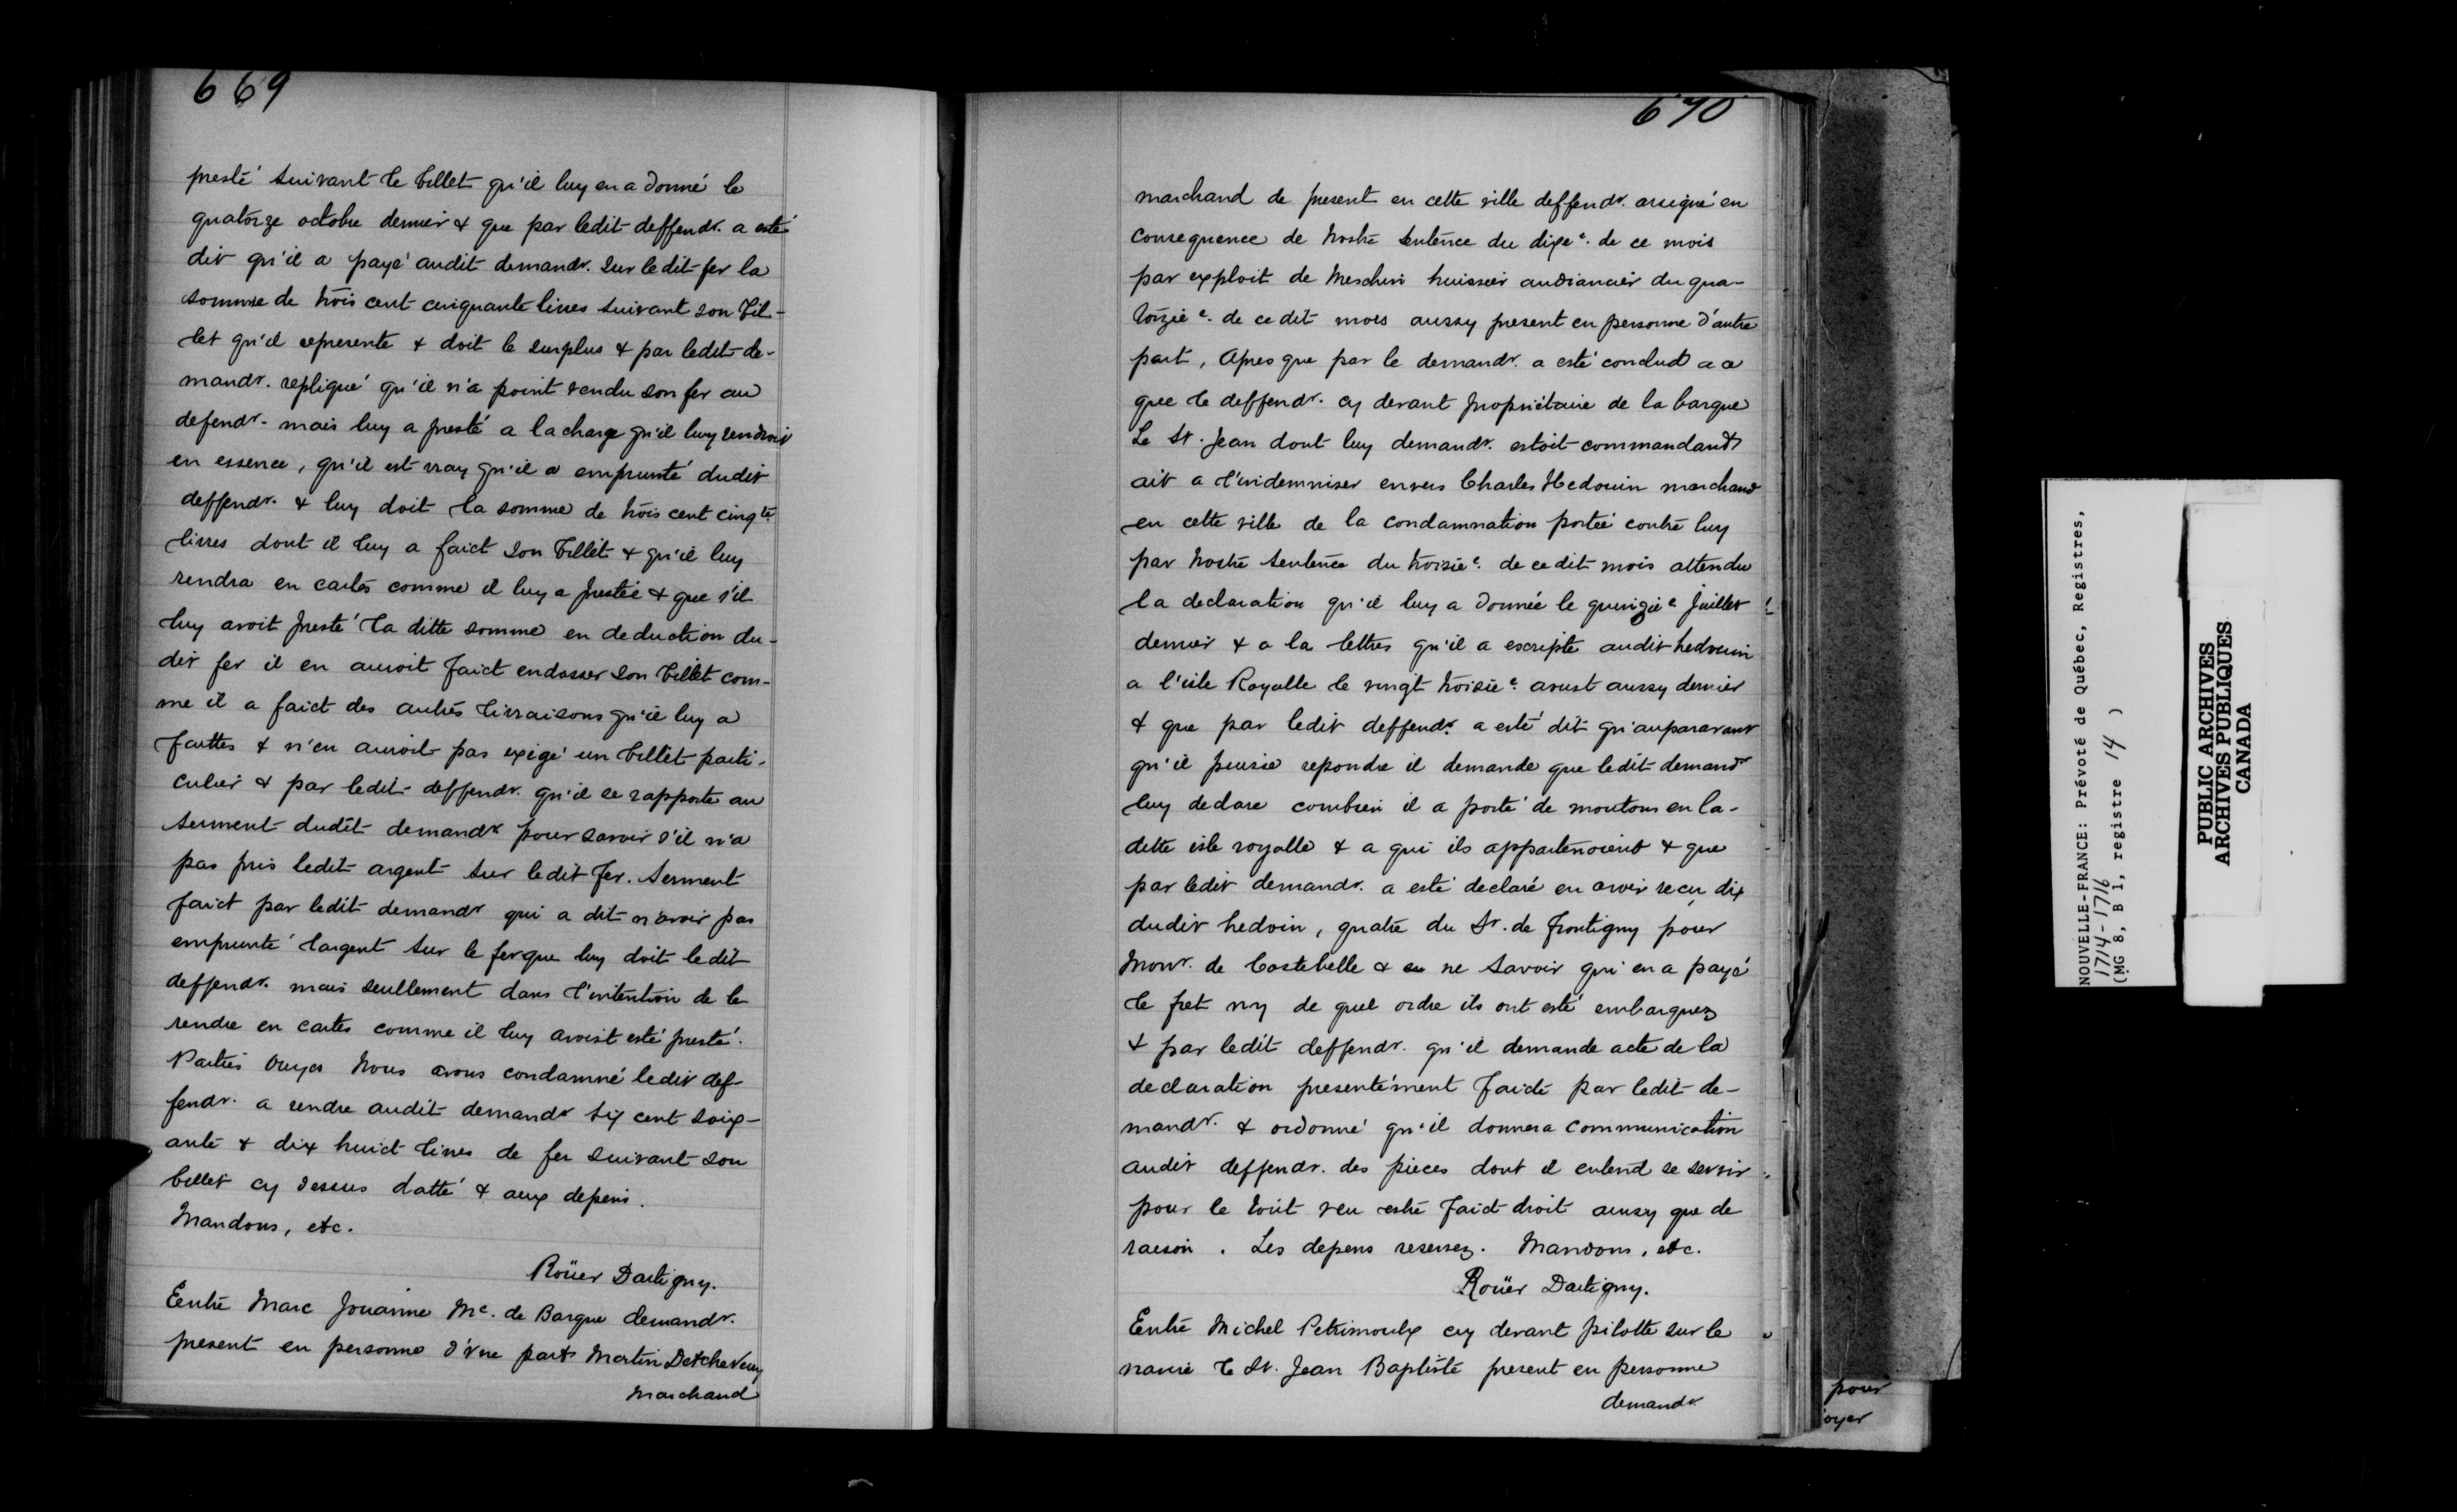 669
presté suivant le billet qu'il luy en a donné le
quatorze octobre dernier & que par ledit deffendr. a esté
dit qu'il a payé audit demandr. sur ledit fer la
somme de trois cent cinquante livres suivant son bil-
let qu'il represente & doit le surplus & par ledit de-
mandr. repliqué qu'il n'a point vendu son fer au
defendr. mais luy a presté a la charge qu'il luy rendroit
en essence, qu'il est vray qu'il a emprunté dudit
deffendr. & luy doit la somme de trois cent cinqte.
livres dont il luy a faict son billet & qu'il luy
rendra en cartes comme il luy a prestée & que s'il
luy avoit presté la ditte somme en deduction du-
dit fer il en auroit faict endosser son billet com-
me il a faict des autres livraisons qu'il luy a
faittes & n'en auroit pas exigé un billet parti-
culier & par ledit deffendr. qu'il se rapporte au
serment dudit demandr pour savoir s'il n'a
pas pris ledit argent sur ledit fer. Serment
faict par ledit demandr qui a dit n'avoir pas
emprunté l'argent sur le fer que luy doit ledit
deffendr. mais seullement dans l'intention de le
rendre en cartes comme il luy avoist esté presté.
Parties ouyes Nous avons condamné ledit def-
fendr. a rendre audit demandr six cent soix-
ante & dix huict livres de fer suivant son
billet cy dessus datté & aux depens.
Mandons, etc.
Roüer Dartigny.
Entre Marc Jouanne Me. de Barque demandr.
present en personne d'vne part & Martin Detcheveuy
marchand
670
marchand de present en cette ville deffendr. assigné en
consequence de Nostre sentence du dixe. de ce mois
par exploit de Meschin huissier audiancier du qua-
torzie e. de ce dit mois aussy present en personne d'autre
part, Apres que par le demandr. a esté conclud a ce
que le deffendr. cy devant propriétaire de la barque
Le St. Jean dont luy demandr. estoit commandant
ait a l'indemniser envers Charles Hedouin marchand
en cette ville de la condamnation portée contre luy
par Nostre sentence du troisie e. de cedit mois attendu
la declaration qu'il luy a donnée le quinzie e Juillet
dernier & a la lettres qu'il a escripte audit hedouin
a l'isle Royalle le vingt troisie e. aoust aussy dernier
& que par ledit deffendr. a esté dit qu'auparavant
qu'il puisse repondre il demande que ledit demandr
luy declare combien il a porté de moutons en la-
ditte isle royalle & a qui ils appartenoient & que
par ledit demandr. a esté declaré en avoir recu dix
dudit hedoin, quatre du Sr. de Frontigny pour
Monr. de Costebelle & ne savoir qui en a payé
le fret ny de quel ordre ils ont esté embarquez
& par ledit deffendr. qu'il demande acte de la
declaration presentement faicte par ledit de-
mandr. & ordonné qu'il donnera communication
audit deffendr. des pieces dont il entend se servir
pour le tout veu estre faict droit ainsy que de
raison. Les depens reservez. Mandons, etc.
Roüer Dartigny.
Entre Michel Petrimoulx cy devant pilotte sur le
navire le St. Jean Baptiste present en personne
demandr.
pour
oyer
NOUVELLE-FRANCE: Prévoté de Québec, Registres,
1714-1716
(MG 8, B 1, registre 14 )
PUBLIC ARCHIVES
ARCHIVES PUBLIQUES
CANADA